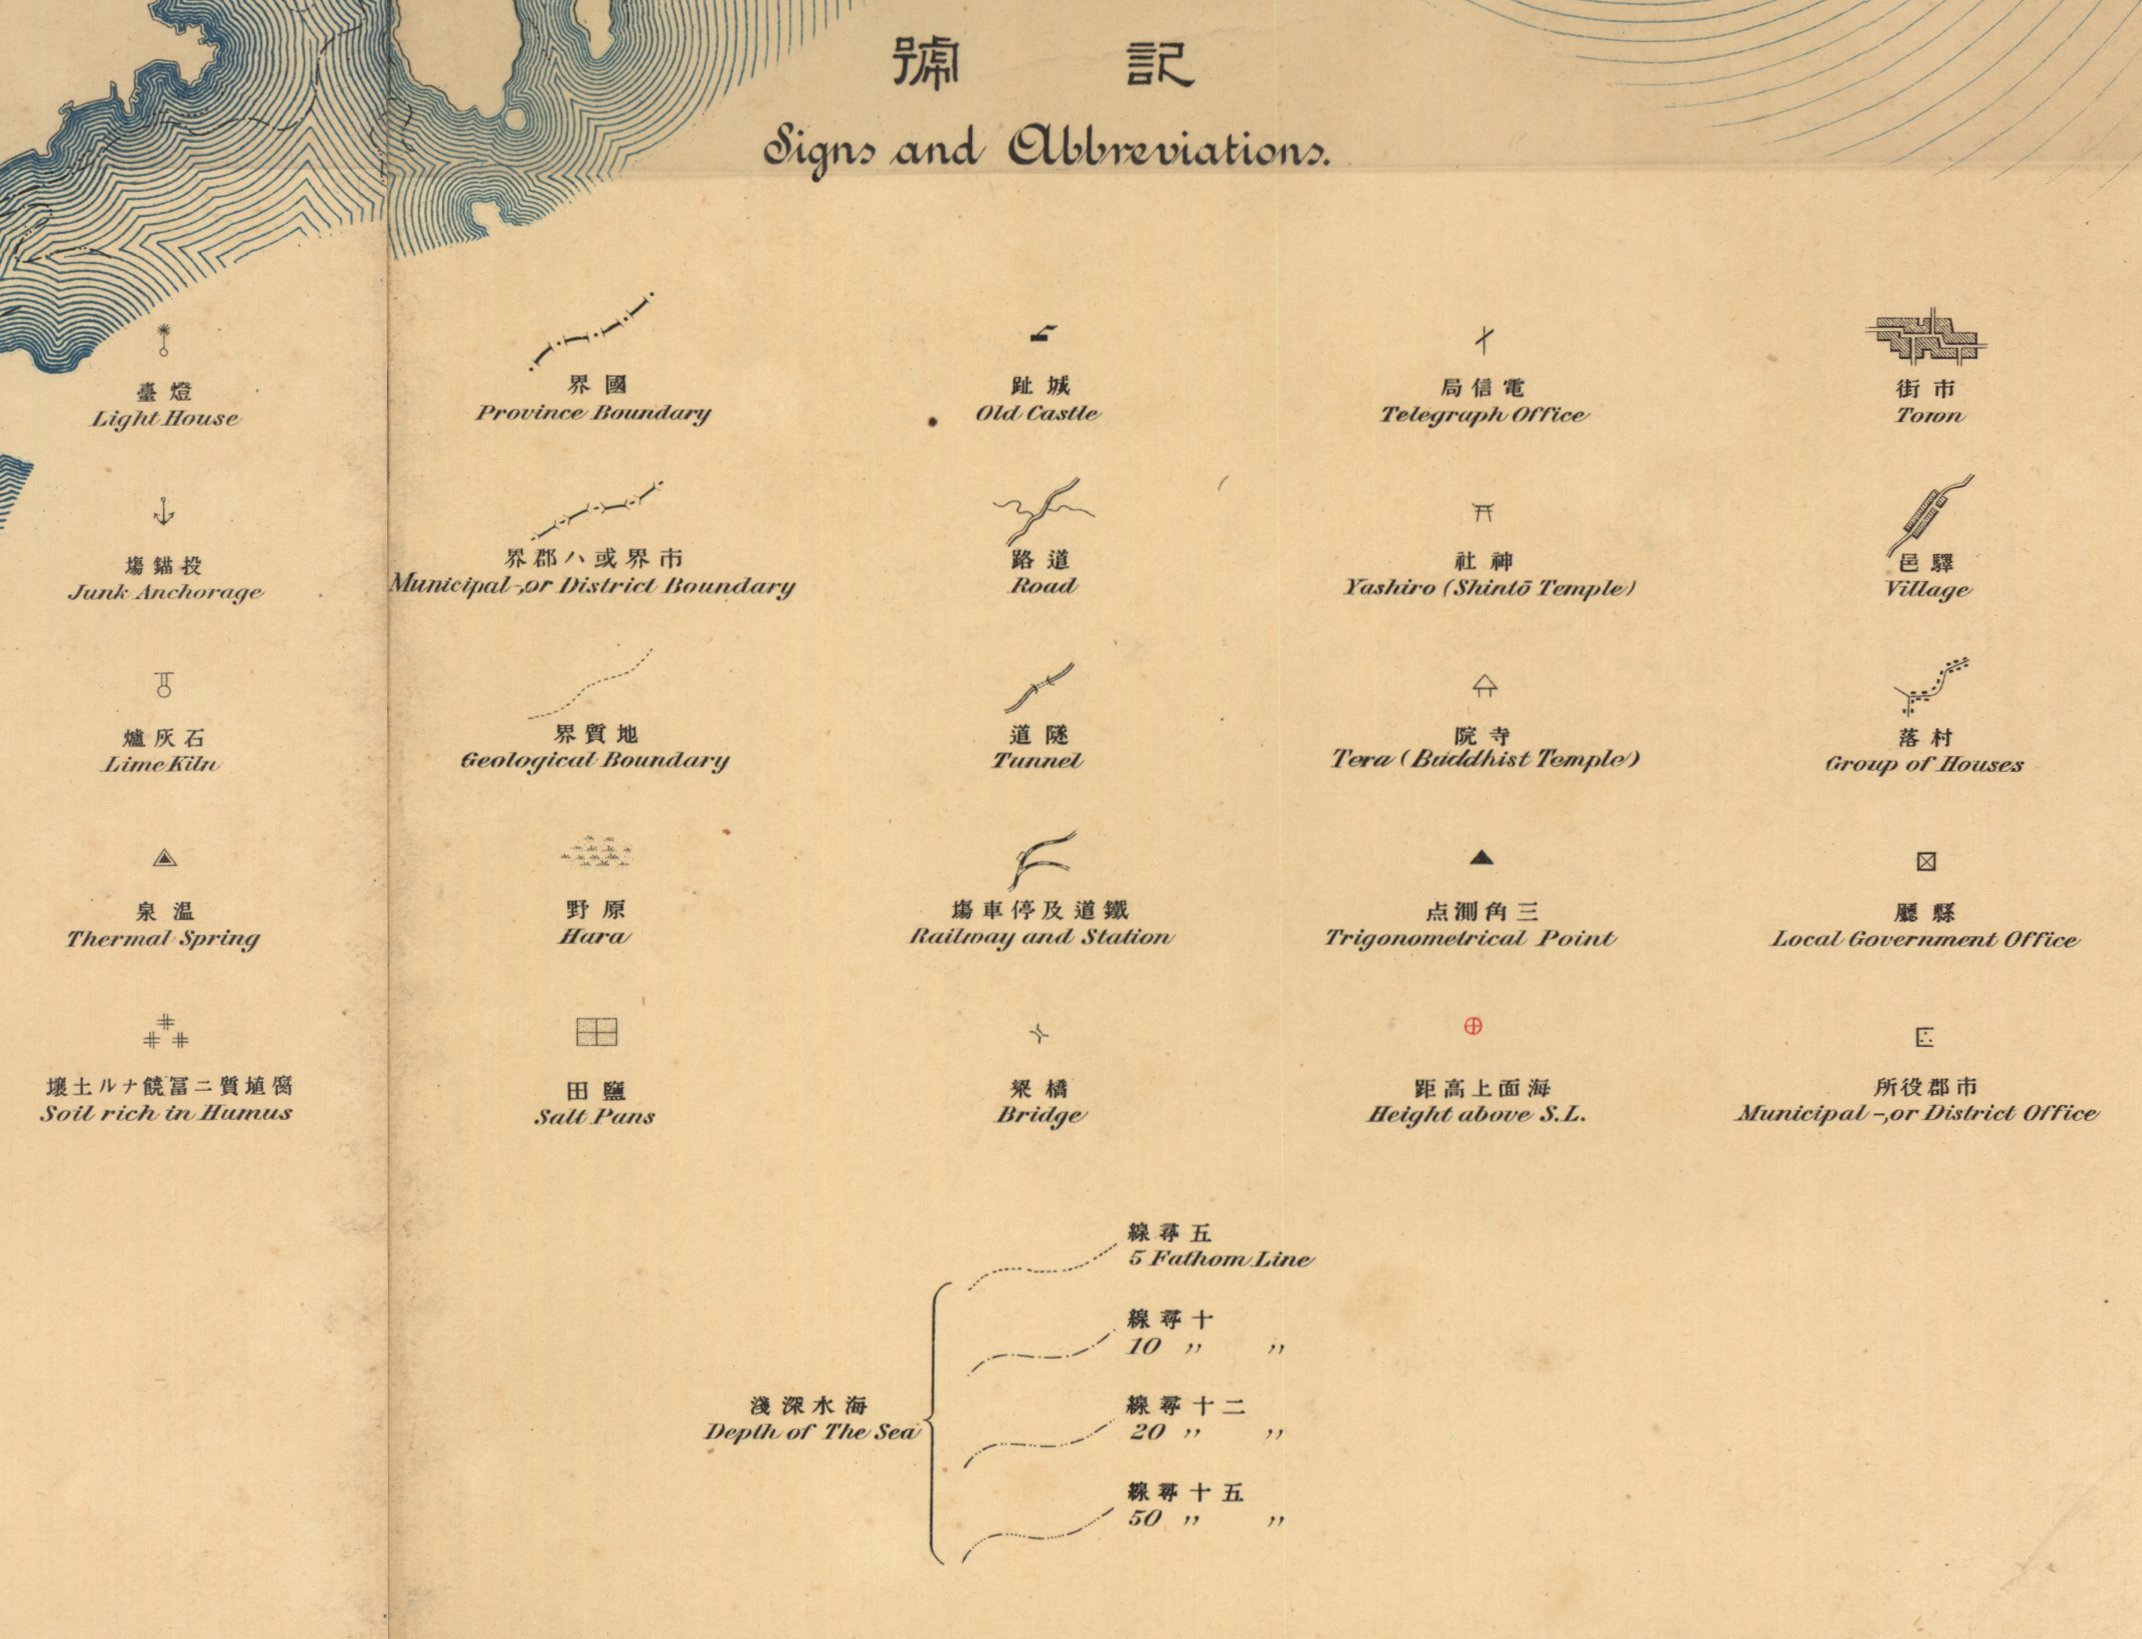 記號
Signs and Abbreviations.
燈臺
Light House
國界
Province Boundary
城趾
Old Castle
電信局
Telegraph Office
市街
Town
投錨塲
Junk Anchorage
市界或ハ郡界
Municipal-,or District Boundary
道路
Road
神社
Yashiro (Shintō Temple)
驛邑
Village
石灰爐
Lime Kiln
地質界
Geological Boundary
隧道
Tunnel
寺院
Tera (Buddhist Temple)
村落
Group of Houses
温泉
Thermal Spring
原野
Hara
鐵道及停車塲
Railway and Station
三角測点
Trigonometrical Point
縣廳
Local Government Office
腐埴質ニ冨饒ナル土壤
Soil rich in Humus
鹽田
Salt Pans
橋梁
Bridge
海面上高距
Height above S.L.
市郡役所
Municipal-,or District Office
海水深淺
Depth of The Sea
五尋線
5 Fathom Line
十尋線
10 〃 〃
二十尋線
20 〃 〃
五十尋線
50 〃 〃